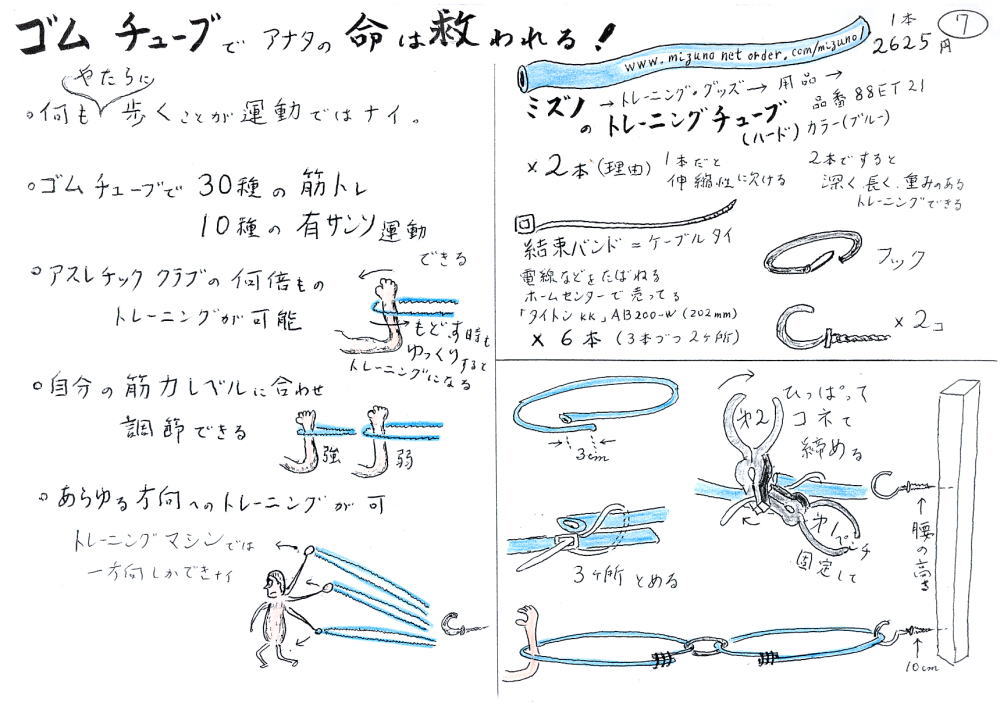 ゴム チューブで アナタの 命は救われる!
やたらに
○何も 歩くことが運動ではナイ。
○ゴム チューブで 30種の筋トレ
10種の有サンソ運動
できる
○アスレチック クラブの何倍もの
トレーニングが可能
もどす時も
ゆっくりすると
トレーニングになる
○自分の筋力レベルに合わせ
調節できる
強
弱
○あらゆる方向へのトレーニングが可
トレーニングマシンでは
一方向しかできナイ
7
1本
2625円
www.mizuno net order.com/mizuno/
ミズノ →トレーニング・グッズ→ 用品→
のトレーニングチューブ
品番 88ET21
(ハード) カラー(ブルー)
×2本(理由)
1本だと
伸縮性に欠ける
2本ですると
深く、長く、重みのある
トレーニングできる
結束バンド=ケーブルタイ
電線などをたばねる
ホームセンターで売ってる
「タイトンKK」AB200-W(202mm)
×6本(3本づつ2ヶ所)
フック
×2コ
3cm
3ヶ所とめる
ひっぱって
コネて
締める
オ2
オ1
ペンチ
固定して
腰の高さ
10cm